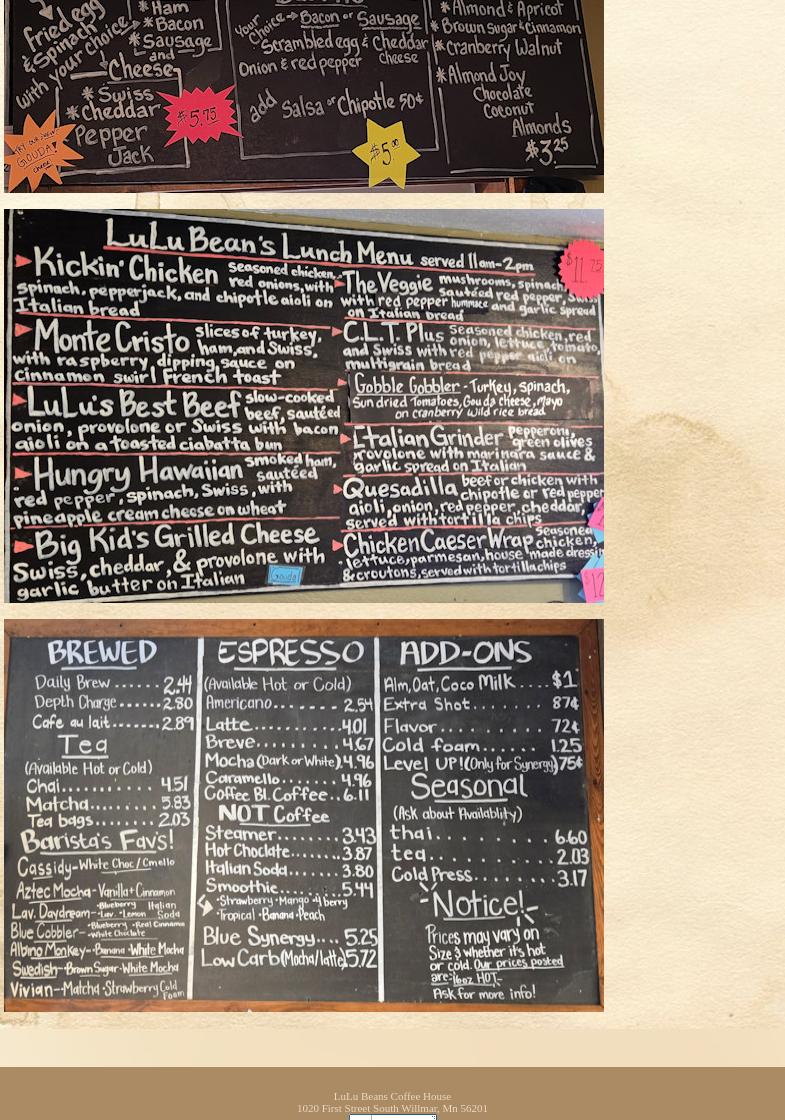 Fried egg
& Spinach
with your choice
* Ham
* Bacon
* Sausage
and
Cheese
* Swiss
* Cheddar
Pepper
Jack
$5.75
TRY OUR NEW
GOUDA!
cheese
Your
choice → Bacon or Sausage
Scrambled egg & Cheddar
cheese
Onion & red pepper
add Salsa or Chipotle 50¢
$5.00
* Almond & Apricot
* Brown sugar & Cinnamon
* Cranberry Walnut
* Almond Joy
Chocolate
Coconut
Almonds
$3.25
LuLu Bean's Lunch Menu served 11am-2pm
$11.75
Kickin' Chicken seasoned chicken,
red onions, with
spinach, pepperjack, and chipotle aioli on
Italian bread
Monte Cristo slices of turkey,
ham, and Swiss,
with raspberry dipping sauce on
cinnamon swirl French toast
LuLu's Best Beef slow-cooked
beef, sautéed
onion, provolone or Swiss with bacon
aioli on a toasted ciabatta bun
Hungry Hawaiian smoked ham,
sautéed
red pepper, spinach, Swiss, with
pineapple cream cheese on wheat
Big Kid's Grilled Cheese
Swiss, cheddar, & provolone with
garlic butter on Italian
Gouda
The Veggie mushrooms, spinach,
sautéed red pepper, Swiss
with red pepper hummace and garlic spread
on Italian bread
C.L.T. Plus Seasoned chicken, red
onion, lettuce, tomato,
and Swiss with red pepper aioli on
multigrain bread
Gobble Gobbler - Turkey, spinach,
Sun dried Tomatoes, Gouda cheese, Mayo
on cranberry wild rice bread
Italian Grinder Pepperoni,
green olives
provolone with marinara sauce &
garlic spread on Italian
Quesadilla beef or chicken with
chipotle or red pepper
aioli, onion, red pepper, cheddar,
served with tortilla chips
Chicken Caeser Wrap Seasoned
chicken,
lettuce, parmesan, house made dressin
& croutons, served with tortilla chips
12
BREWED
Daily Brew ...... 2.44
Depth Charge ...... 2.80
Cafe au lait ...... 2.89
Tea
(Available Hot or Cold)
Chai ........... 4.51
Matcha .......... 5.83
Tea bags ......... 2.03
Barista's Fav's!
Cassidy - White Choc / Cmello
Aztec Mocha - Vanilla + Cinnamon
Lav. Daydream - Blueberry Italian
Lav. • Lemon Soda
Blue Cobbler - Blueberry • Real Cinnamon
White Choclate
Albino Monkey - Banana • White Mocha
Swedish - Brown Sugar • White Mocha
Vivian - Matcha • Strawberry Cold
Foam
ESPRESSO
(Available Hot or Cold)
Americano ........ 2.54
Latte ........... 4.01
Breve .......... 4.67
Mocha (Dark or White) 4.96
Caramello ........ 4.96
Coffee Bl. Coffee .. 6.11
NOT Coffee
Steamer ........ 3.43
Hot Choclate ...... 3.87
Italian Soda ...... 3.80
Smoothie ........ 5.44
• Strawberry • Mango • 4 berry
• Tropical • Banana • Peach
Blue Synergy .... 5.25
Low Carb (Mocha/latte) 5.72
ADD-ONS
Alm, Oat, Coco Milk .... $1
Extra Shot ....... 87¢
Flavor ......... 72¢
Cold foam ...... 1.25
Level UP! (Only for Synergy) 75¢
Seasonal
(Ask about Availablity)
thai .......... 6.60
tea .......... 2.03
Cold Press ....... 3.17
Notice!
Prices may vary on
Size & whether it's hot
or cold. Our prices posted
are: 16oz HOT -
Ask for more info!
LuLu Beans Coffee House
1020 First Street South Willmar, Mn 56201